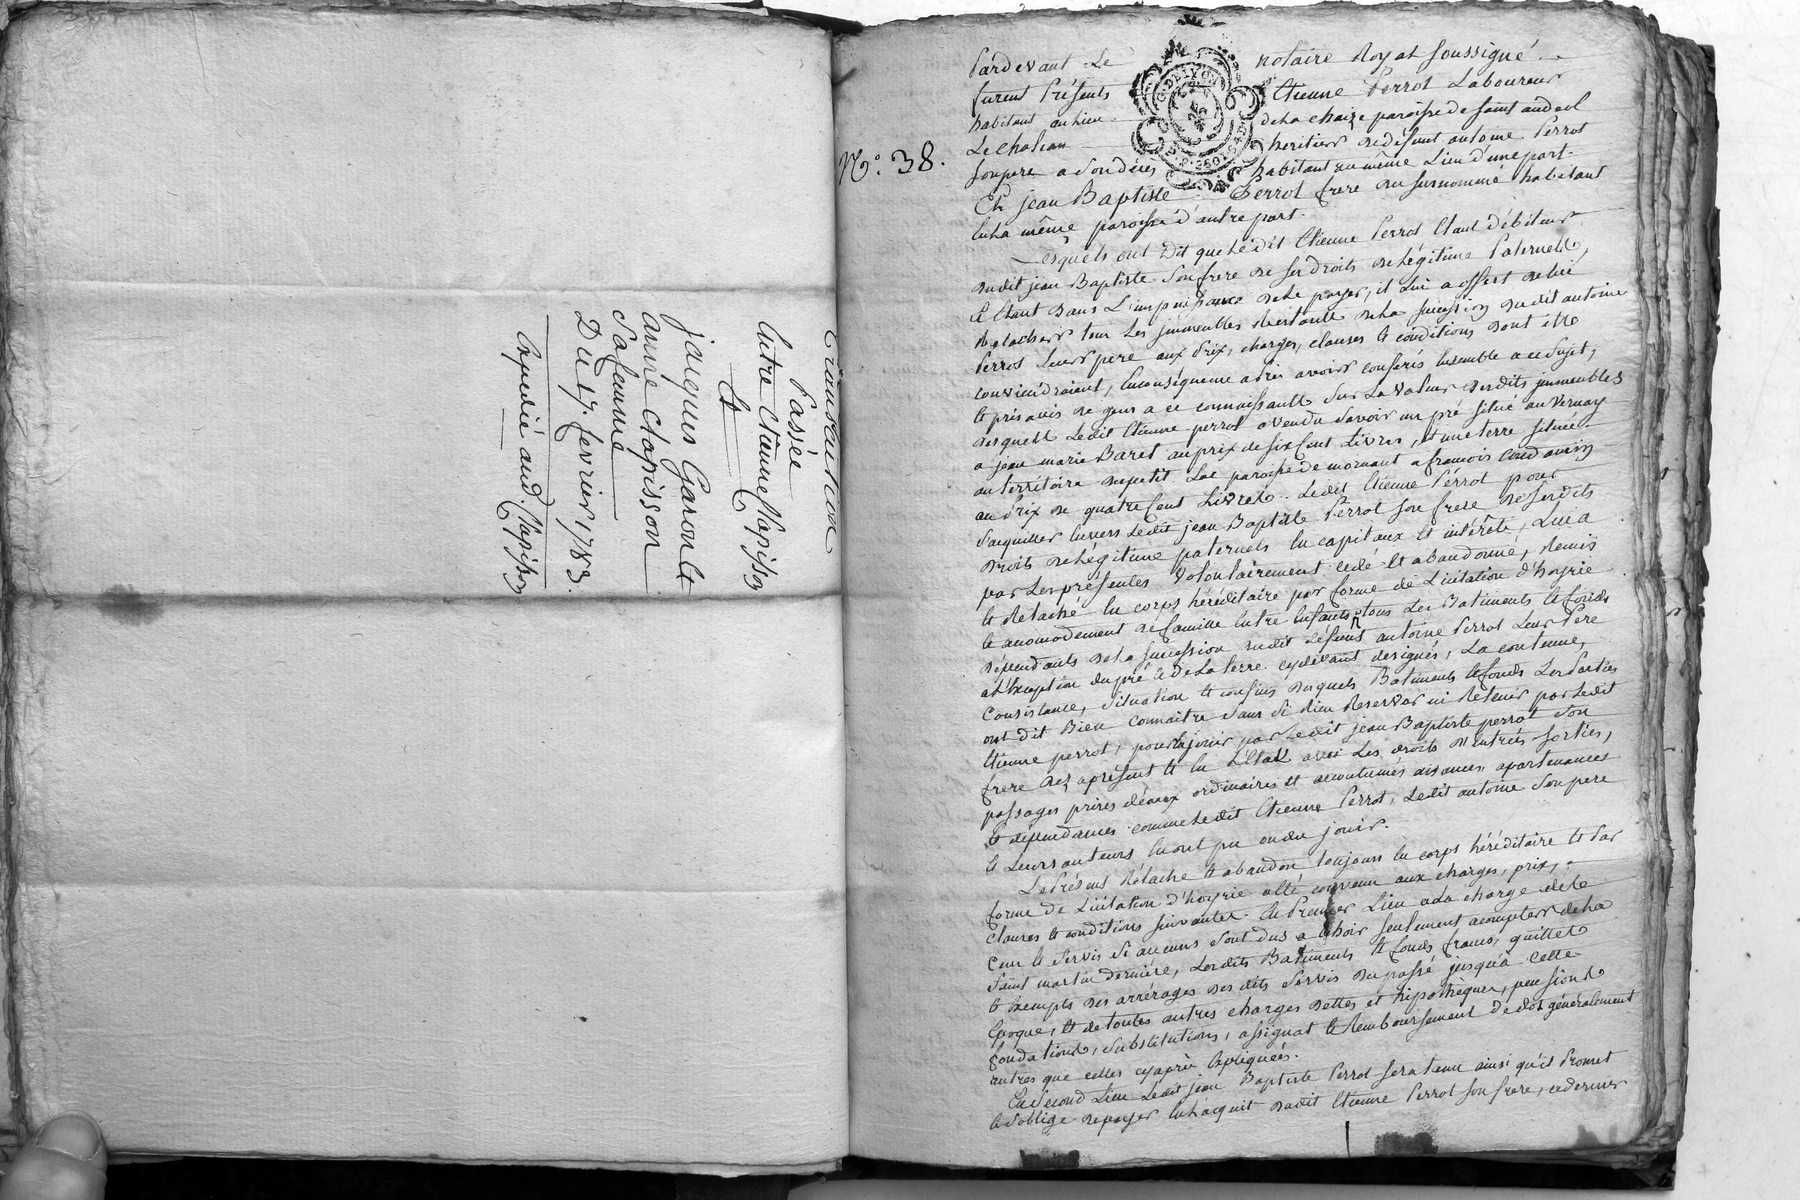 Transaction
Passée
Entre Etienne Clapisson
Et
jacques Garon Et
anne Clapisson
Sa femme
Du 17. fevrier 1783.
Expediée aud. Clapisson
No. 38.
G. DE LYON
Pardevant Le notaire Royal soussigné.
furent Présents Etienne Perrot Laboureur
habitant au Lieu de La chaize paroisse de saint andeol
Le chateau heritier de défunt antoine Perrot
son pere a son décès habitant au même Lieu d'une part.
Et jean Baptiste Perrot frere du surnommé habitant
en La même paroisse d'autre part.
Lesquels ont Dit que Ledit Etienne Perrot Etant Débiteur
dudit jean Baptiste son frere de ses droits de Légitime Paternelle,
Et Etant Dans L'impuissance de Le payer, il Lui a offert de lui
Relacher tous Les immeubles Restants de La succession dudit antoine
Perrot Leur pere aux Prix, charges, clauses Et conditions dont ils
conviendroient, En conséquence après avoir conférés Ensemble a ce sujet,
Et pris avis de gens a ce connoissants sur La valeur desdits immeubles
desquels Ledit Etienne perrot a vendu savoir un pré situé au Vernay
a jean marie Baret au prix de six Cent Livres, et une terre située
au territoire du petit Lac paroisse de mornant a francois Condamin
au Prix de quatre Cent Livres. Ledit Etienne Perrot pour
s'acquitter Envers Ledit jean Baptiste Perrot son frere de sesdits
Droits de Légitime paternels En capitaux Et intérêts, Lui a
par Les présentes Volontairement cédé Et abandonné, Remis
Et Relaché En corps héréditaire par forme de Licitation d'hoyrie
Et accomodement de famille Entre Enfants, tous Les Batiments Et fonds
Dépendants de La succession dudit défunt antoine Perrot Leur Pere
a L'Exception du pré Et de La terre cydevant designés, La contenue,
Consistance, situation Et confins desquels Batiments Et fonds Les Parties
ont dit Bien connaitre sans si Rien Reserver ni Retenir par Ledit
Etienne perrot, pour En jouir par Ledit jean Baptiste perrot son
frere des apresent Et En L'Etat avec Les droits d'entrées sorties,
passages prises d'eaux ordinaires et accoutumés aisances, apartenances
Et dépendances comme Ledit Etienne Perrot, Ledit antoine son pere
Et Leurs auteurs En ont pu ou du jouir.
Le Présent Relache Et abandon toujours En corps héréditaire Et Par
forme de Licitation d'hoyrie a Eté convenu aux charges, prix,
clauses Et conditions suivantes. En Premier Lieu a La charge de Le
Cens Et Servis si aucuns sont Dus a Echoir seulement acompter de La
Saint martin derniére, Lesdits Batiments Et fonds francs, quittes
Et Exempts des arrérages desdits Servis du passé jusqu'à cette
Epoque, Et de toutes autres charges dettes et hipothèques, pensions
fondations, substitutions, assignat Et Remboursement de dot généralement
autres que celles cyaprès Expliquées.
En Second Lieu Ledit jean Baptiste Perrot sera tenu ainsi qu'il Promet
Et s'oblige de payer En L'acquit dudit Etienne Perrot son frere, ce dernier